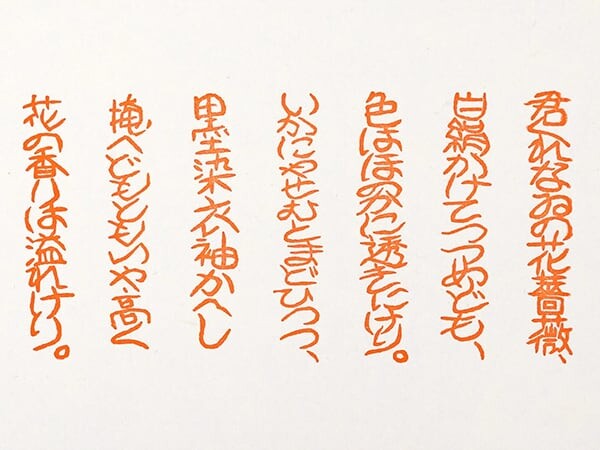 君くれなゐの花薔薇、
白絹かけてつつめども、
色はほのかに透きにけり。
いかにやせむとまどひつつ、
墨染衣袖かへし
掩へどもともいや高く
花の香りは溢れけり。